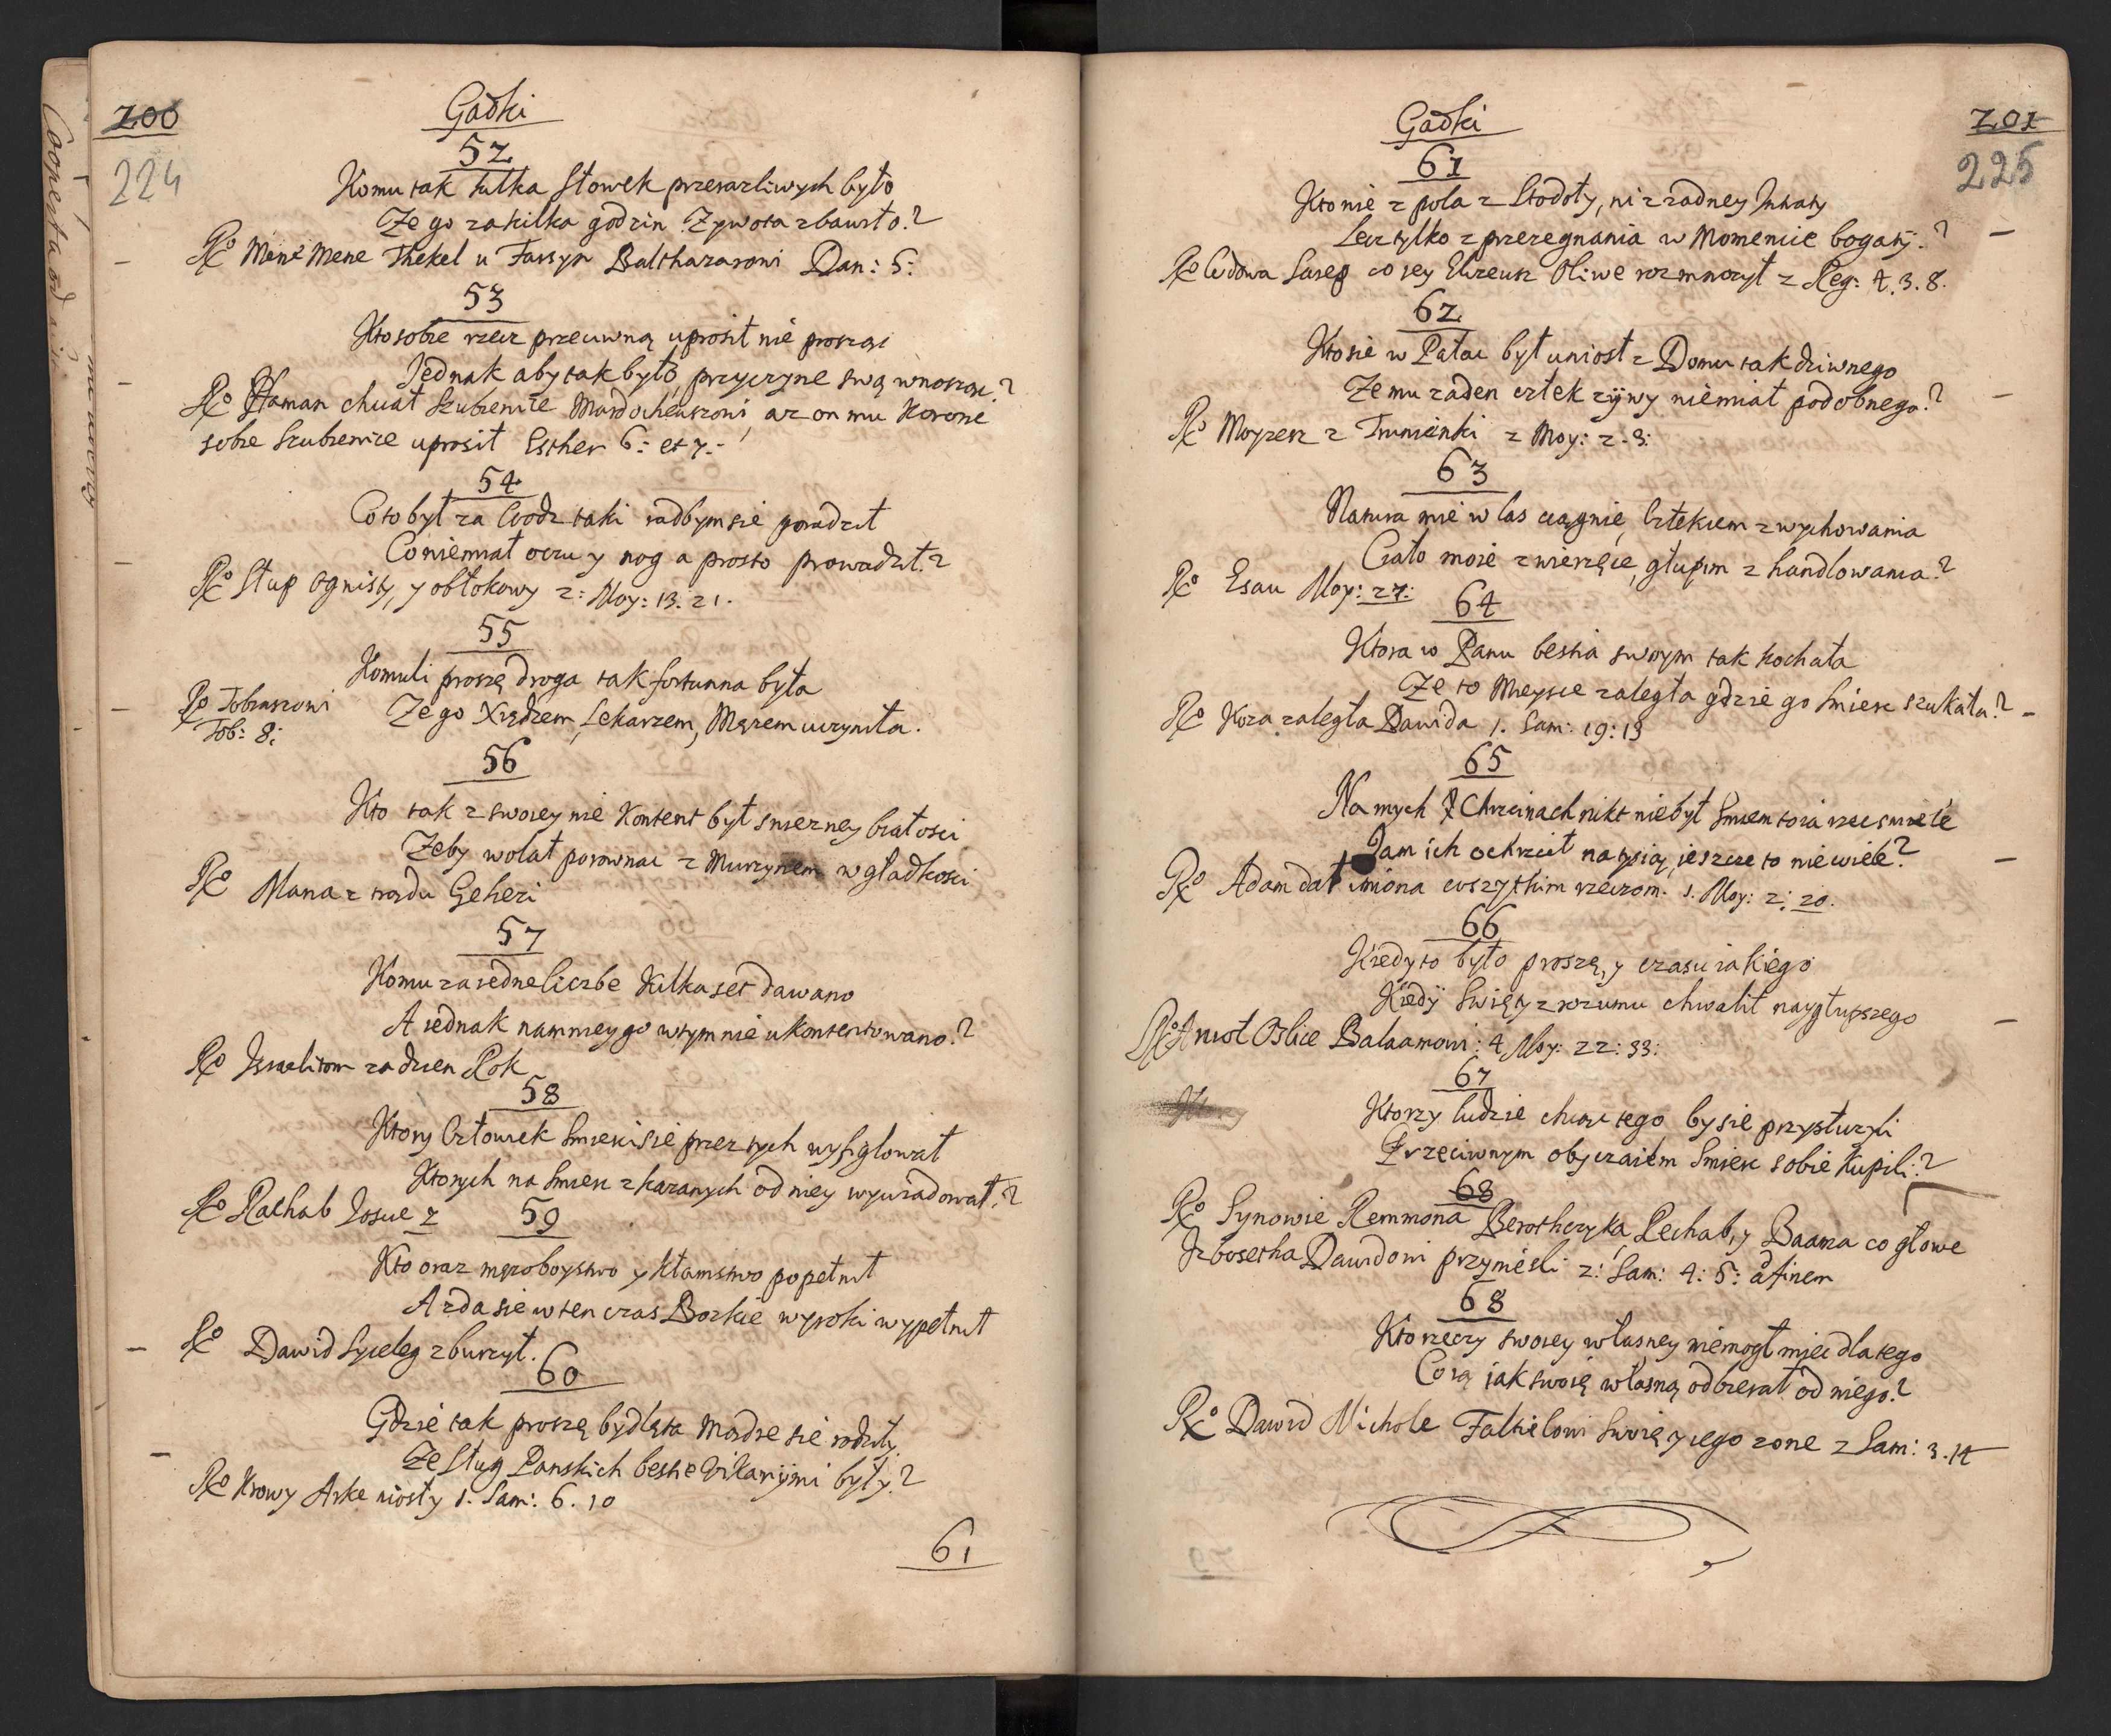 200
224
Gadki
52
Komu tak kilka słowek przeraźliwych było
Ze go za kilka godzin Zywota zbawiło?
Ro Mene Mene Thekel u Farsyn Balthazarowi Dan: 5:
53
Kto sobie rzecz przeciwną uprosił nie prosząc
Jednak aby tak było, przyczyne swą wnosząc?
Ro Haman chciał szubienice Mardocheuszowi, az on mu Korone
sobie szubienice uprosił Esther 6: et 7:
54
Co to był za Wodz taki radbym sie poradził
Co niemiał oczu y nog a prosto prowadził?
Ro Słup Ognisty, y obłokowy 2: Moy: 13: 21.
55
Komuli proszę droga tak fortunna była
Ze go Xiędzem, Lekarzem, Męzem uczyniła.
Ro Tobiaszowi
Tob: 8:
56
Kto tak z swoiey nie Kontent był snieżney białosci
Zeby wolał porownac z Murzynem w gładkosci
Ro Mana z trądu Gehezi
57
Komu za iedne liczbe Kilkaset dawano
A iednak namniey go w tym nie ukontentowano?
Ro Israelitom za dzien Rok
58
Ktory Człowiek smierci sie przez tych wyfiglował
Ktorych na smierc zkazanych od niey wyuradował?
Ro Rachab Josue 2
59
Kto oraz męzoboystwo y kłamstwo popełnił
A zda sie w ten czas Bozkie wyroki wypełnił
Ro Dawid Syceleg zburzył.
60
Gdzie tak proszę bydlęta Mądre sie rodziły
Ze sług Panskich bestie Vikaryjmi były?
Ro Krowy Arke niosły 1. Sam: 6. 10
61
201
225
Gadki
61
Kto nie z pola z Stodoły, ni z zadney Intraty
Lecz tylko z przezegnania w Momencie bogaty?
Ro Wdowa Sarep co iey Elizeusz Oliwe rozmnozył 2 Reg: 4. 3. 8.
62
Kto sie w Pałac był uniosł z Domu tak dziwnego
Ze mu zaden człek zÿwy niemiał podobnego?
Ro Moyzesz z Trunienki 2 Moy: 2. 3:
63
Natura mie w las ciągnie, Człekiem z wychowania
Ciało moie zwierzęce, głupim z handlowania?
Ro Esau Moy: 27:
64
Ktora w Panu bestia swoym tak kochała
Ze to Mieysce zaległa gdzie go smierc szukała?
Ro Koza zaległa Dawida 1. Sam: 19: 13
65
Na mych Chrzcinach nikt niebył smiem to ia rzec smiele
Jam ich ochrzcił na tysią, jeszcze to niewiele?
Ro Adam dał imiona wszytkim rzeczom. 1. Moy: 2: 20.
66
Kiedy to było proszę, y czasu iakiego
Kiedÿ swięty z rozumu chwalił nagłupszego
Ro Anioł Oslice Balaamowi: 4 Moy: 22: 33:
67
Ktorzy ludzie chcąc tego by sie przysłuzyli
Przeciwnym obyczaiem smierc sobie kupili?
68
Ro Synowie Remmona Berothczyka Rechab, y Baana co głowe
Izbosetha Dawidowi przyniesli 2: Sam: 4: 5: ad finem
68
Kto rzeczy swoiey własney niemogł miec dlatego
Co ią jak swoię własną odbierał od niego?
Ro Dawid Michole Faltielowi swoię y iego zone 2 Sam: 3. 14